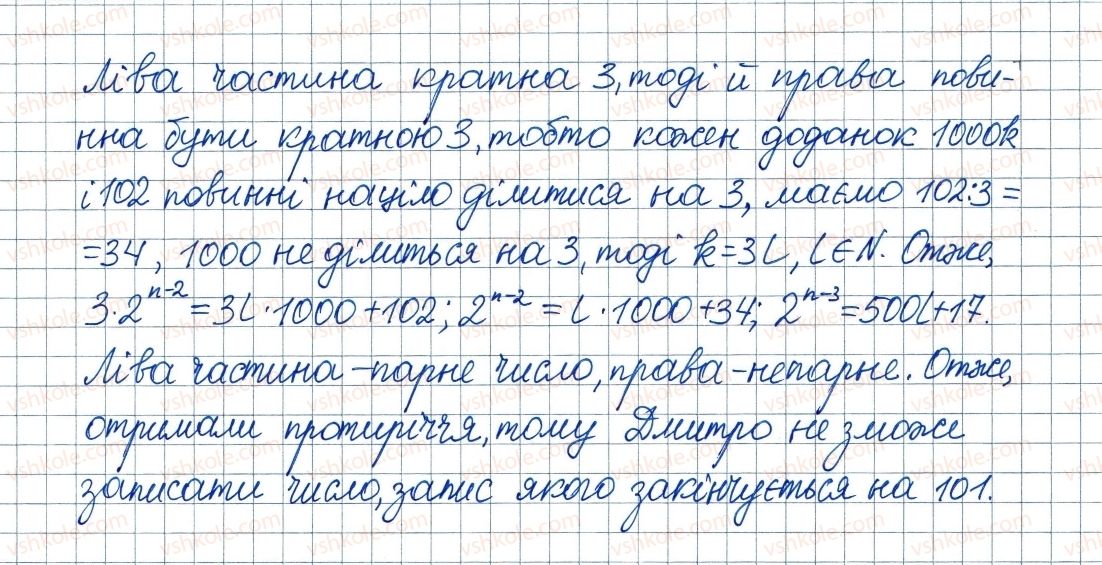 Ліва частина кратна 3, тоді й права пови-
нна бути кратною 3, тобто кожен доданок 1000k
і 102 повинні націло ділитися на 3, маємо 102:3=
=34, 1000 не ділиться на 3, тоді k=3l, l∈N. Отже,
3·2^(n-2)=3l·1000+102; 2^(n-2)=l·1000+34; 2^(n-3)=500l+17.
Ліва частина – парне число, права – непарне. Отже,
отримали протиріччя, тому Дмитро не зможе
записати число, запис якого закінчується на 101.
vshkole.com